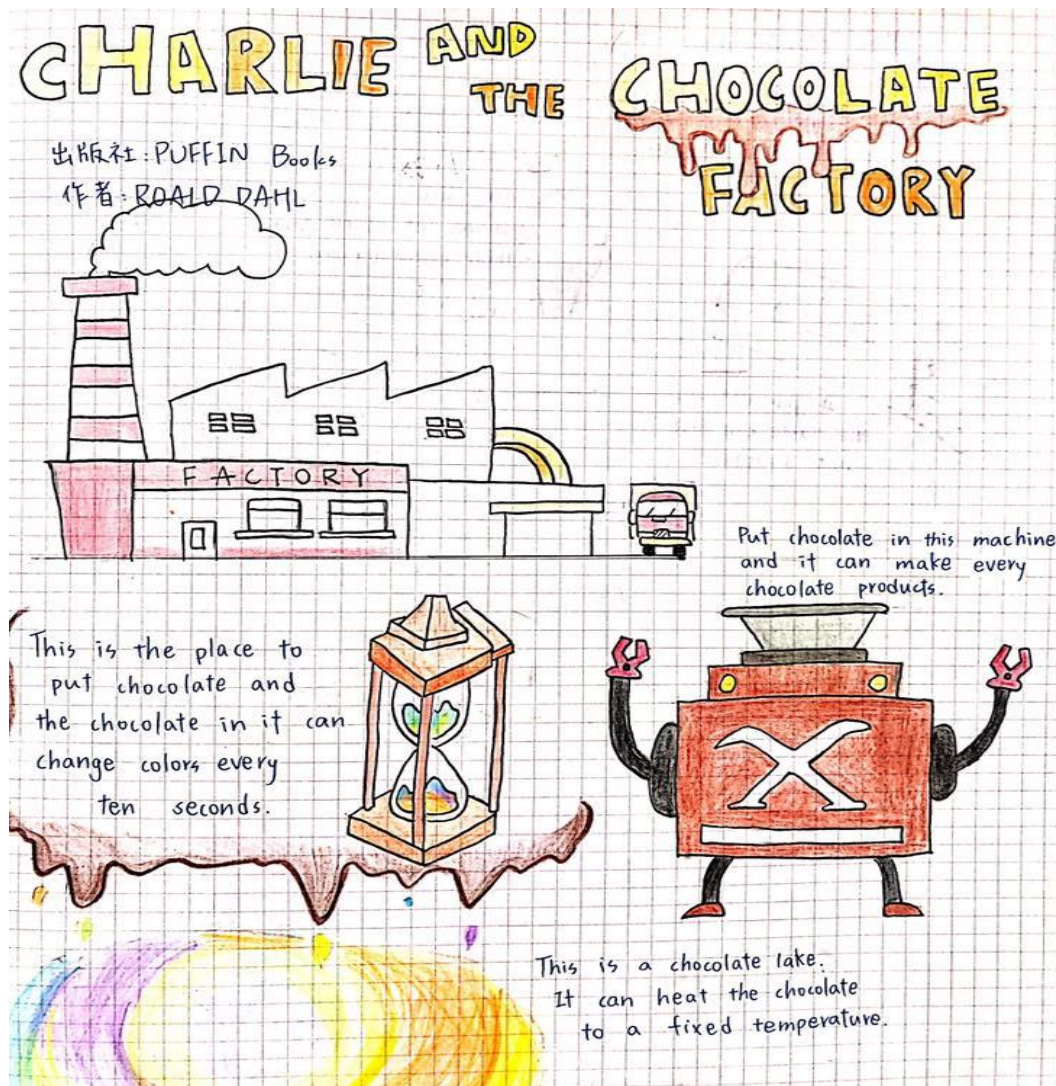 CHARLIE AND THE CHOCOLATE FACTORY
出版社:PUFFIN Books
作者:ROALD DAHL
FACTORY
Put chocolate in this machine
and it can make every
chocolate products.
This is the place to
put chocolate and
the chocolate in it can
change colors every
ten seconds.
X
This is a chocolate lake.
It can heat the chocolate
to a fixed temperature.